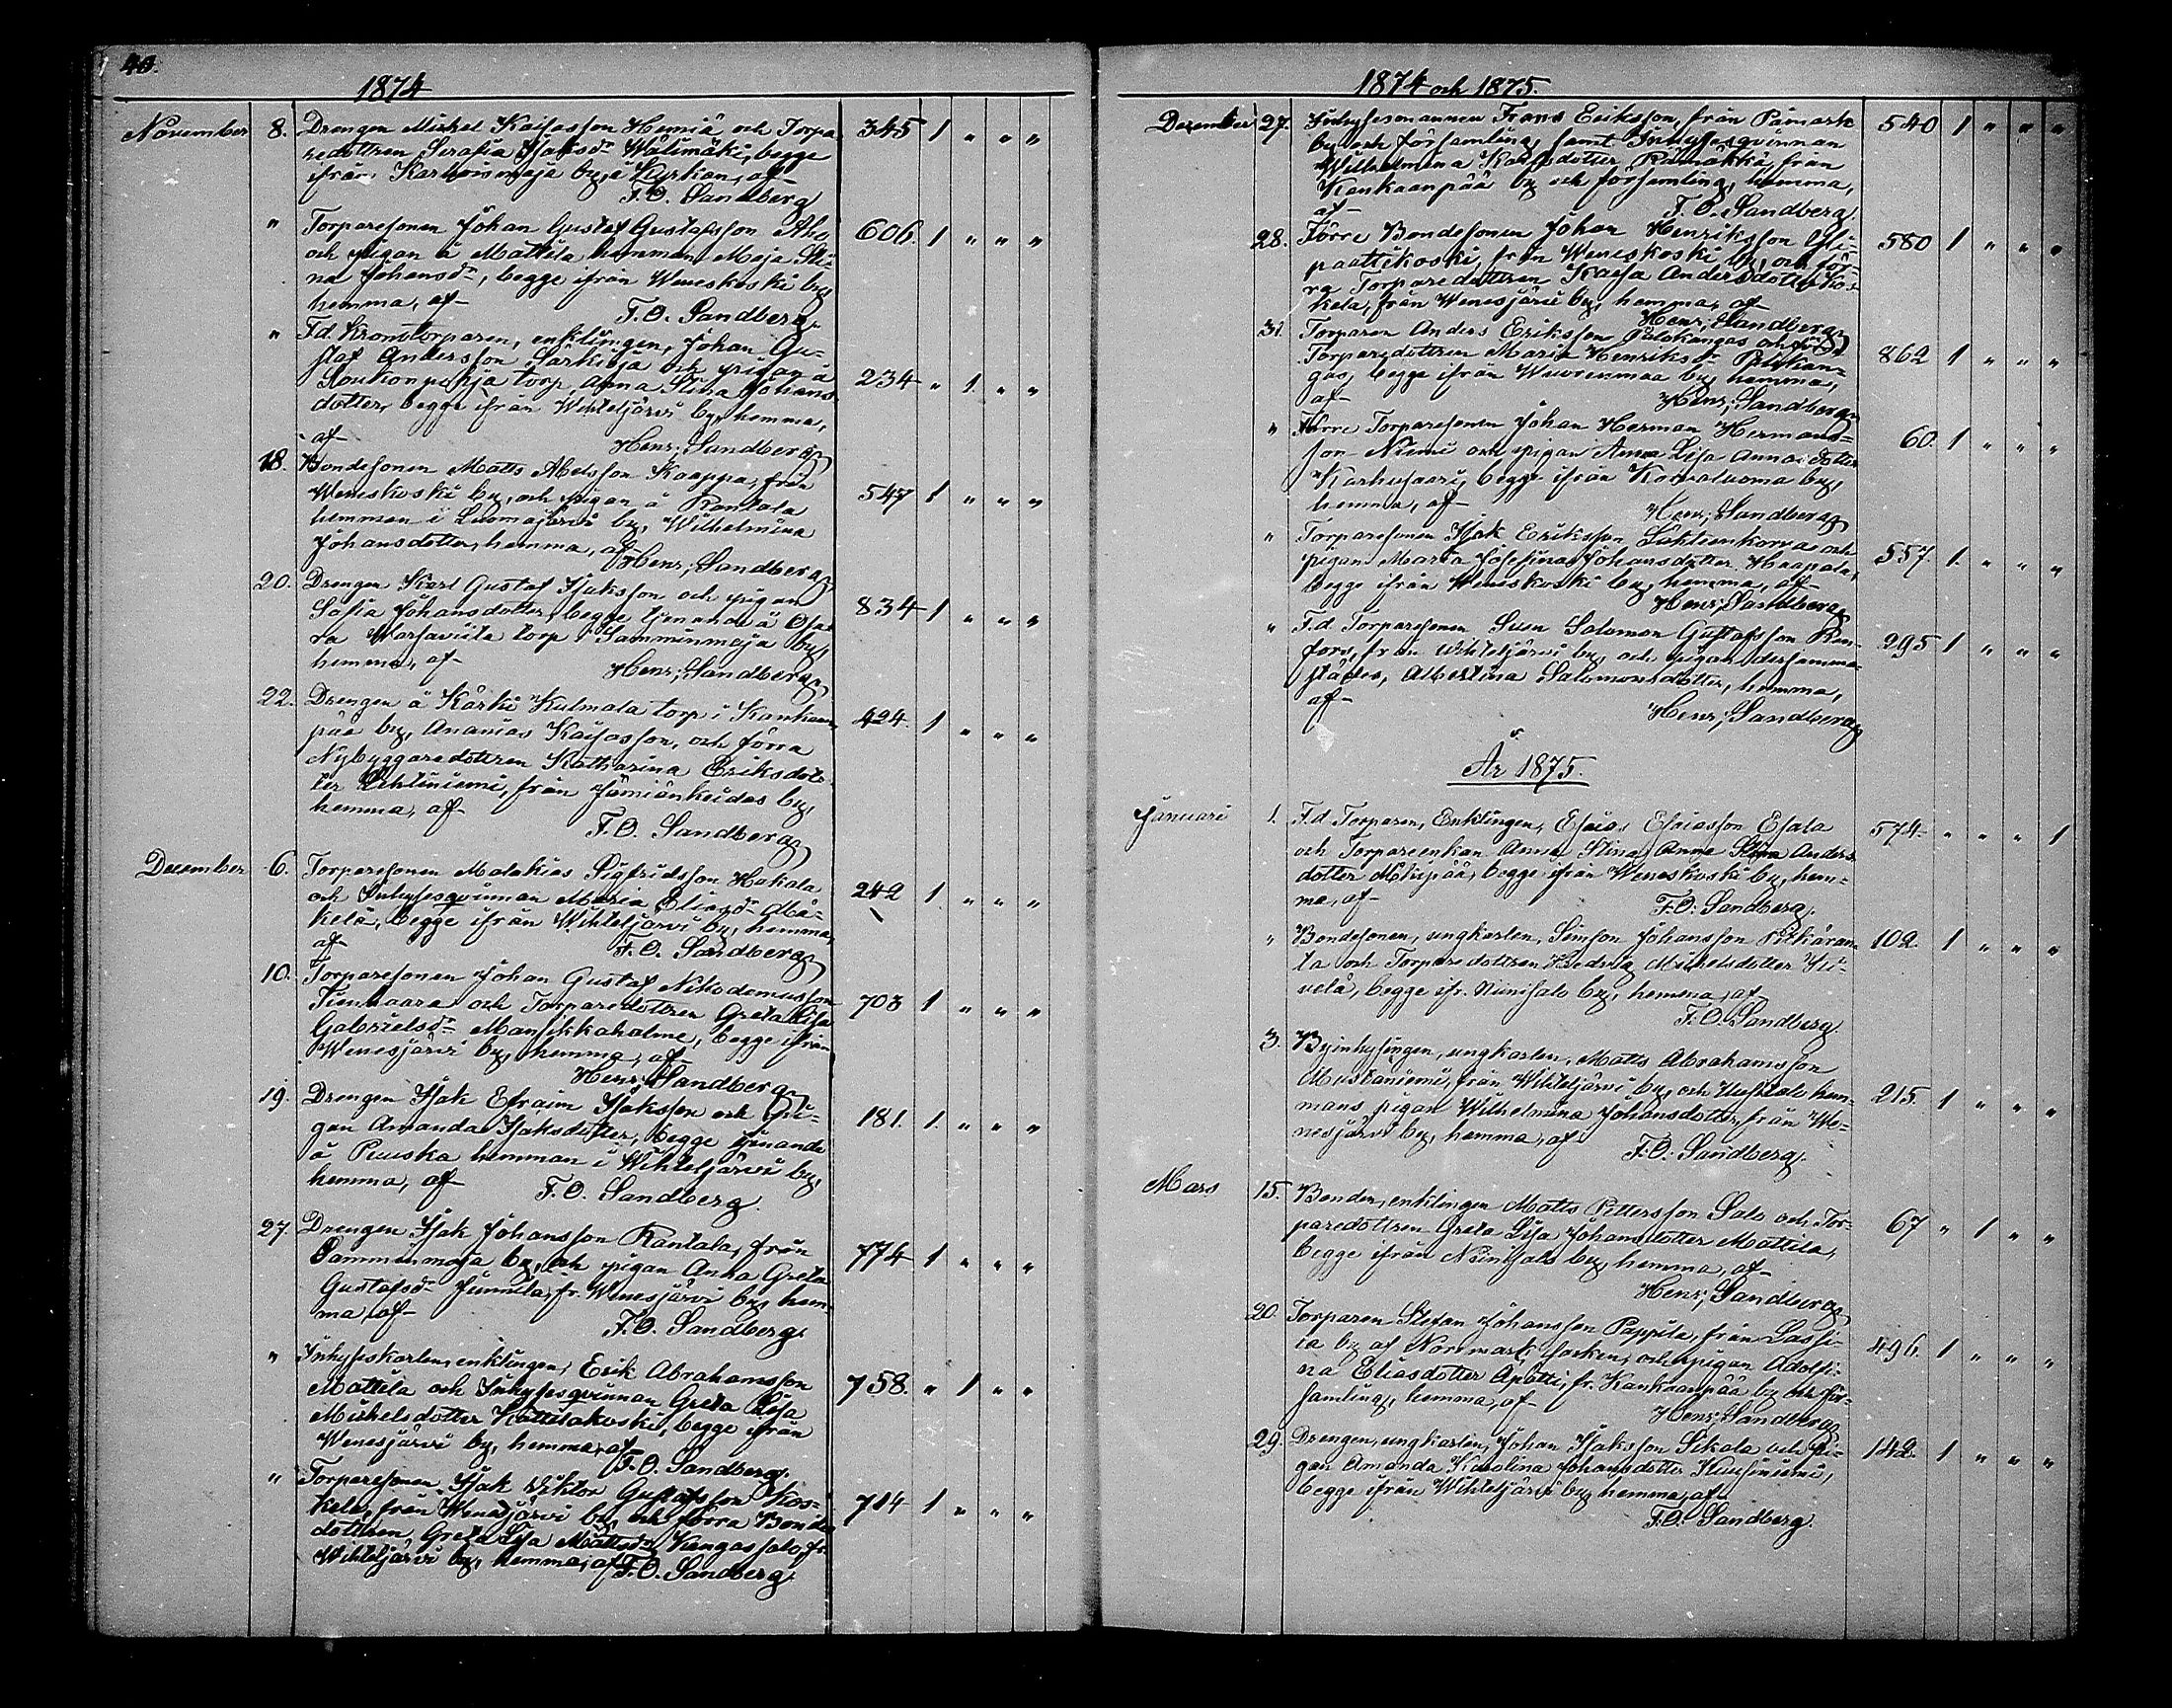 40.
1874
November 8. Drengen Mickel Kaisasson Heiniä och Torpa- 345 1 " " "
redottren Serafia Isaksdr Wälimäki, begge
ifrån Karhoismaja by, i Kyrkan, af
F. O. Sandberg
" Torparesonen Johan Gustaf Gustafsson Aho 606. 1 " " "
och pigan å Mattila hemman Maja Sti-
na Johansdr, begge ifrån Weneskoski by,
hemma, af F. O. Sandberg.
" F.d. Kronotorparen, enklingen, Johan Gu-
staf Andersson Särkioja och pigan å 234 " 1. " "
torp Anna Stina Johans-
dotter, begge ifrån Wihteljärvi by, hemma,
af Henr; Sandberg
18. Bondesonen Matts Abelsson Kaappa, från
Weneskoski by, och pigan å Rantala 547 1 " " "
hemman i Luomajärvi by, Wilhelmina
Johansdotter, hemma, af Henr; Sandberg
20. Drengen Karl Gustaf Isaksson och pigan
Sofia Johansdotter, begge tjenande å 834 1 " " "
torp i Samminmaja by,
hemma, af Henr; Sandberg
22. Drengen å Kärki Kulmala torp i Kankaan- 424. 1 " " "
pää by, Ananias Kaisasson, och förra
Nybyggaredottren Katharina Eriksdot-
ter Lehtiniemi, från Jämiänkeidas by,
hemma, af
F. O. Sandberg
December 6. Torparesonen Malakias Sigfridsson Hakala 242 1 " " "
och Inhysesqvinnan Maria Eliaedr Mä-
kelä, begge ifrån Wihteljärvi by, hemma,
af F. O. Sandberg
10. Torparesonen Johan Gustaf Nikodemusson
och Torparedottren Greta Lisa 703 1 " " "
Gabrielsdr Mansikkakalme, begge ifrån
Wenesjärvi by, hemma, af
Henr; Sandberg
19. Drengen Isak Efraim Isaksson och Pi-
gan Amanda Isaksdotter, begge tjenande 181. 1. " " "
å Puuska hemman i Wihteljärvi by,
hemma, af F. O. Sandberg.
27. Drengen Isak Johansson Rantala, från
Samminmaja by, och pigan Anna Greta 774 1 " " "
Gustafsdr Junnila, fr. Wenesjärvi by, hem-
ma, af F. O. Sandberg.
" Inhyseskarlen, enklingen, Erik Abrahamsson
Mattila och Inhysesqvinnan Greta Lisa 758. " 1 " "
Mickelsdotter Kattilakoski, begge ifrån
Wenesjärvi by, hemma, af
F. O. Sandberg.
" Torparesonen Isak Viktor Gustafsson Kos-
kela, från Wenesjärvi by, och förra Bonde- 714 1 " " "
dottren Greta Lisa Mattsdr Kangassalo, fr.
Wihteljärvi by, hemma, af F. O. Sandberg.
1874 och 1875.
December 27. Inhysesmannen Frans Eriksson, från Påmark 540 1 " " "
by och församling, samt Inhysesqvinnan
Wilhelmina Karlsdotter Rämäkkä, från
Kankaanpää by och församling, hemma,
af F. O. Sandberg.
28. Förre Bondesonen Johan Henriksson Yli- 580 1 " " "
paattikoski, från Weneskoski by, och för-
ra Torparedottren Kaisa Andersdotter Kos-
kela, från Wenesjärvi by, hemma, af
Henr; Sandberg
31. Torparen Anders Eriksson Palokangas och
Torparedottren Maria Henriksdr Palokan- 862 1 " " "
gas, begge ifrån by, hemma,
af Henr; Sandberg
" Förre Torparesonen Johan Herman Hermans- 60. 1 " " "
son Niemi och pigan Anna Lisa Annasdotter
Karhusaari, begge ifrån Korvaluoma by,
hemma, af Henr; Sandberg
" Torparesonen Isak Eriksson Luktienkorpa och 557. 1. " " "
pigan Maria Josefina Johansdotter Haapala,
begge ifrån Weneskoski by, hemma, af
Henr; Sandberg
" F.d. Torparesonen Sven Salomon Gustafsson Ron- 295 1 " " "
fors, från Wihteljärvi by, och pigan dersamma-
städes, Albertina Salomonsdotter, hemma,
af Henr; Sandberg
År 1875.
Januari 1. F.d. Torparen, Enklingen, Esaias Esaiasson Esala 574. " " " 1
och Torpareenkan Anna Stina Anna Stina Anders-
dotter Metsipää, begge ifrån Weneskoski by, hem-
ma, af F. O. Sandberg.
" Bondesonen, ungkarlen, Simson Johansson Pitkäran- 102. 1 " " "
ta och Torparedottren Hedvig Mickelsdotter
velä, begge ifr. Niinisalo by, hemma, af
F. O. Sandberg
3. Byinhysingen, ungkarlen, Matts Abrahamsson
Mustaniemi, från Wihteljärvi by, och Uusitalo hem- 215. 1 " " "
mans pigan Wilhelmina Johansdotter, från We-
nesjärvi by, hemma, af F. O. Sandberg.
Mars 15. Bonden, enklingen Matts Pettersson Salo och Tor- 67 " 1 " "
paredottren Greta Lisa Johansdotter Mattila,
begge ifrån Niinisalo by, hemma, af
Henr; Sandberg
20. Torparen Stefan Johansson Pappila, från Lassi-
la by af Norrmark socken, och pigan Adolfi- 496. 1 " " "
na Eliasdotter Apotti, fr. Kankaanpää by och för-
samling, hemma, af Henr; Sandberg
29. Drengen, ungkarlen, Johan Isaksson Sikala och Pi- 142. 1 " " "
gan Amanda Karolina Johansdotter Kuusiniemi,
begge ifrån Wihteljärvi by, hemma, af
F. O. Sandberg.